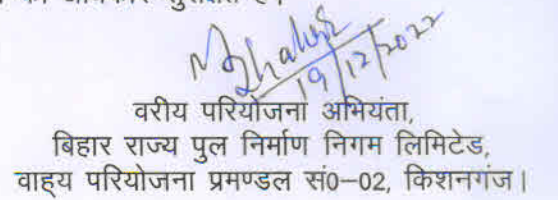 का अधिकार सुरक्षित है।
19/12/2022
वरीय परियोजना अभियंता,
बिहार राज्य पुल निर्माण निगम लिमिटेड,
वाह्य परियोजना प्रमण्डल सं0-02, किशनगंज।